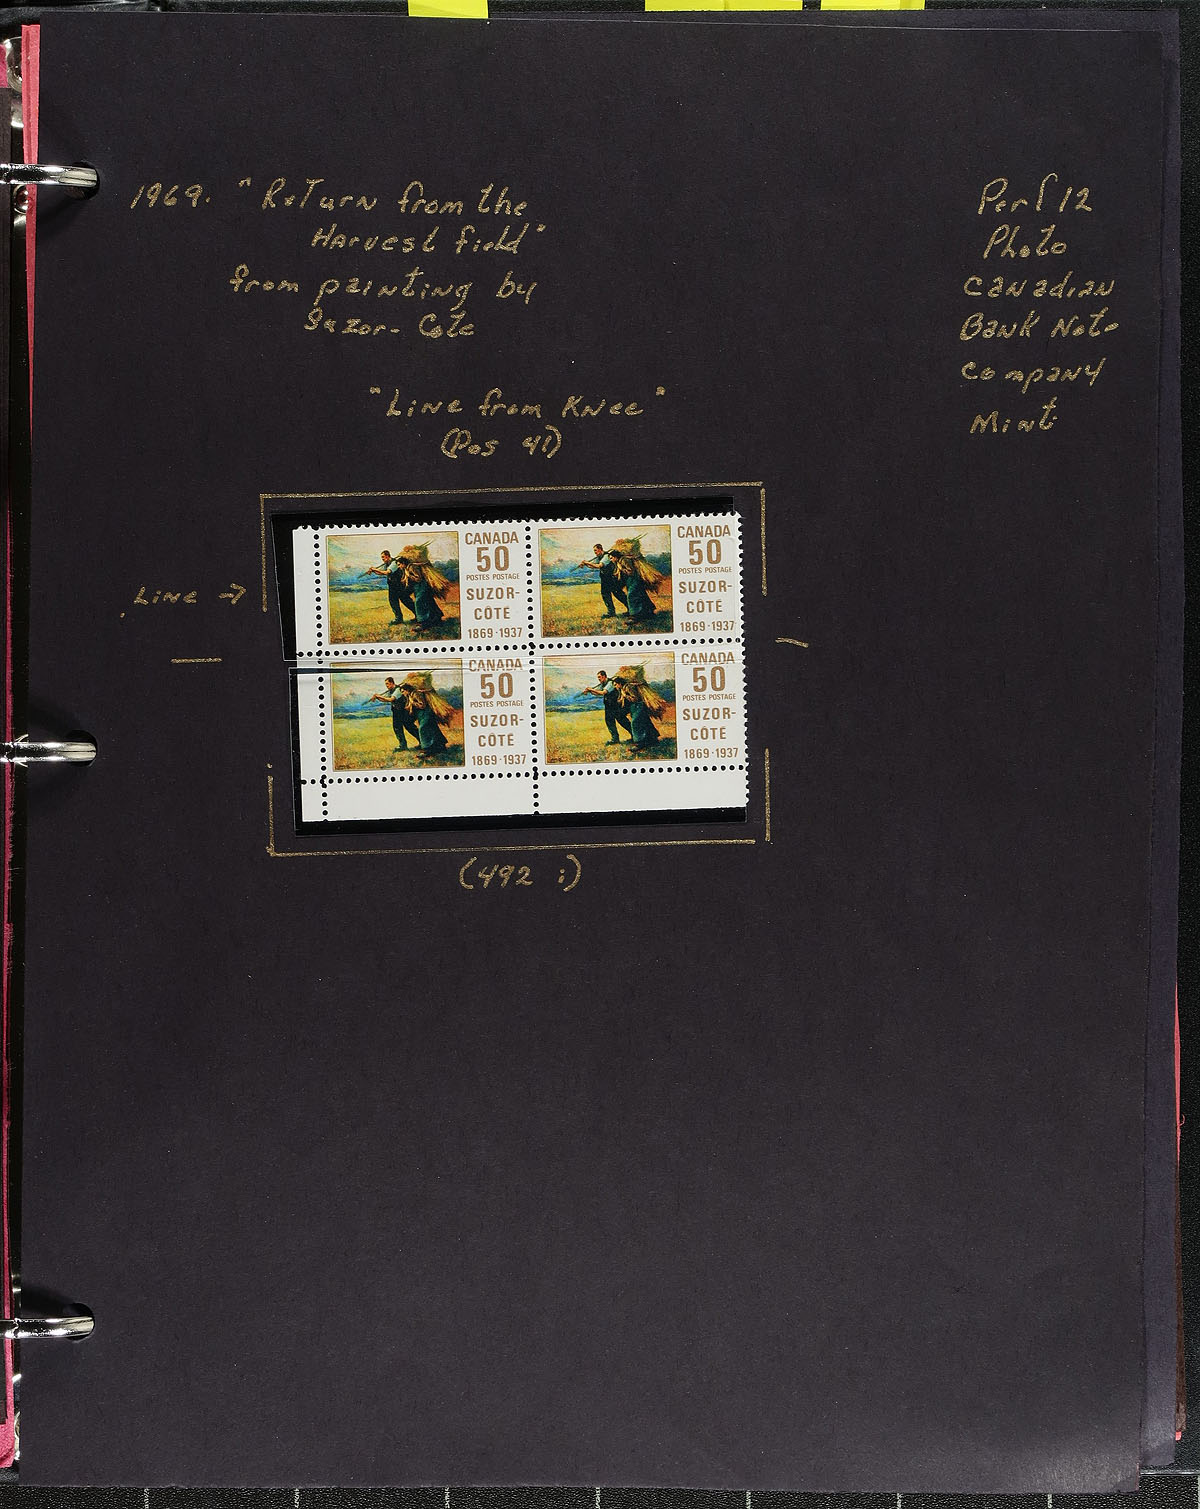 1969. "Return from the
Harvest field"
from painting by
Suzor-Cote
Perf 12
Photo
Canadian
Bank Note
Company
Mint
"Line from Knee"
(Pos 41)
Line →
CANADA
50
POSTES POSTAGE
SUZOR-
CÔTÉ
1869·1937
CANADA
50
POSTES POSTAGE
SUZOR-
CÔTÉ
1869·1937
CANADA
50
POSTES POSTAGE
SUZOR-
CÔTÉ
1869·1937
CANADA
50
POSTES POSTAGE
SUZOR-
CÔTÉ
1869·1937
(492 i)